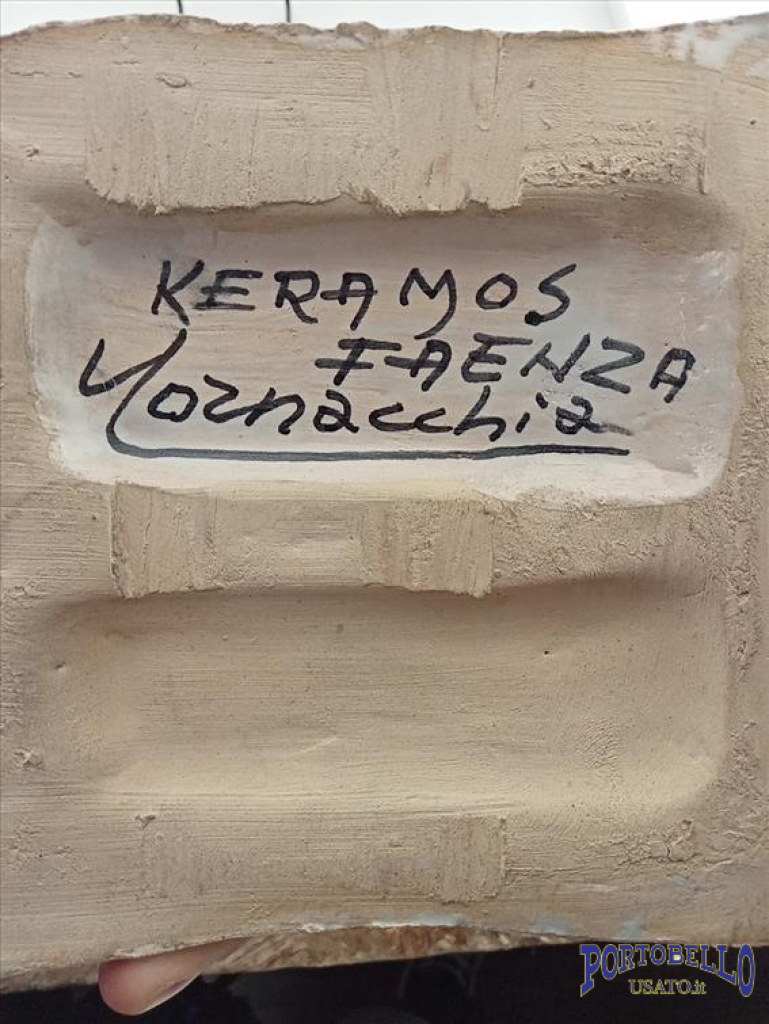 KERAMOS
FAENZA
Vornacchia
PORTOBELLO
USATO.it